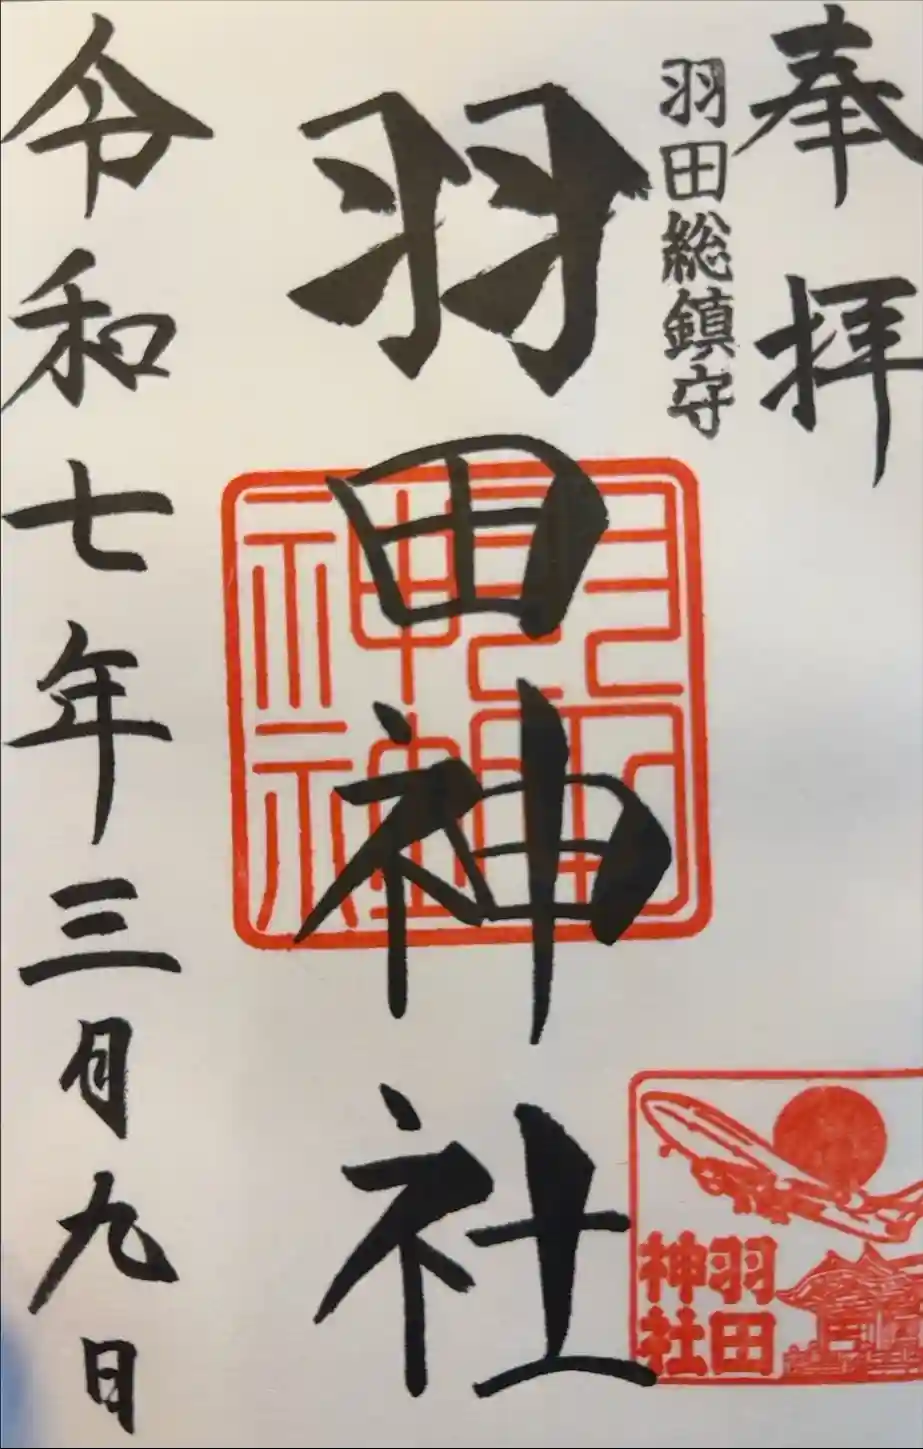 奉拝
羽田総鎮守
羽田神社
羽田神社
羽田
神社
令和七年三月九日